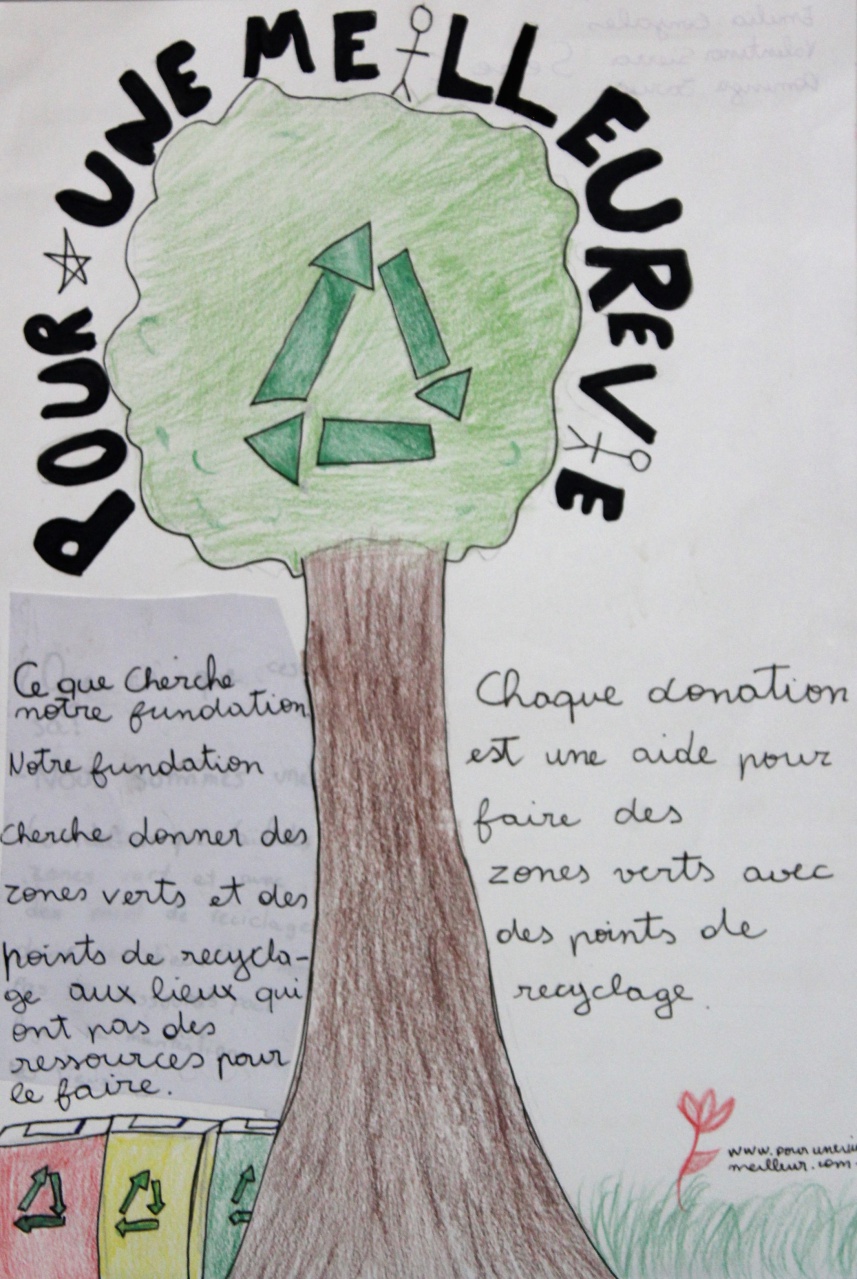 POUR UNE MEILLEURE VIE
Ce que Cherche
notre fundation
Notre fundation
cherche donner des
zones verts et des
points de recycla-
ge aux lieux qui
ont pas des
ressources pour
le faire.
Chaque donation
est une aide pour
faire des
zones verts avec
des points de
recyclage.
meilleur.com